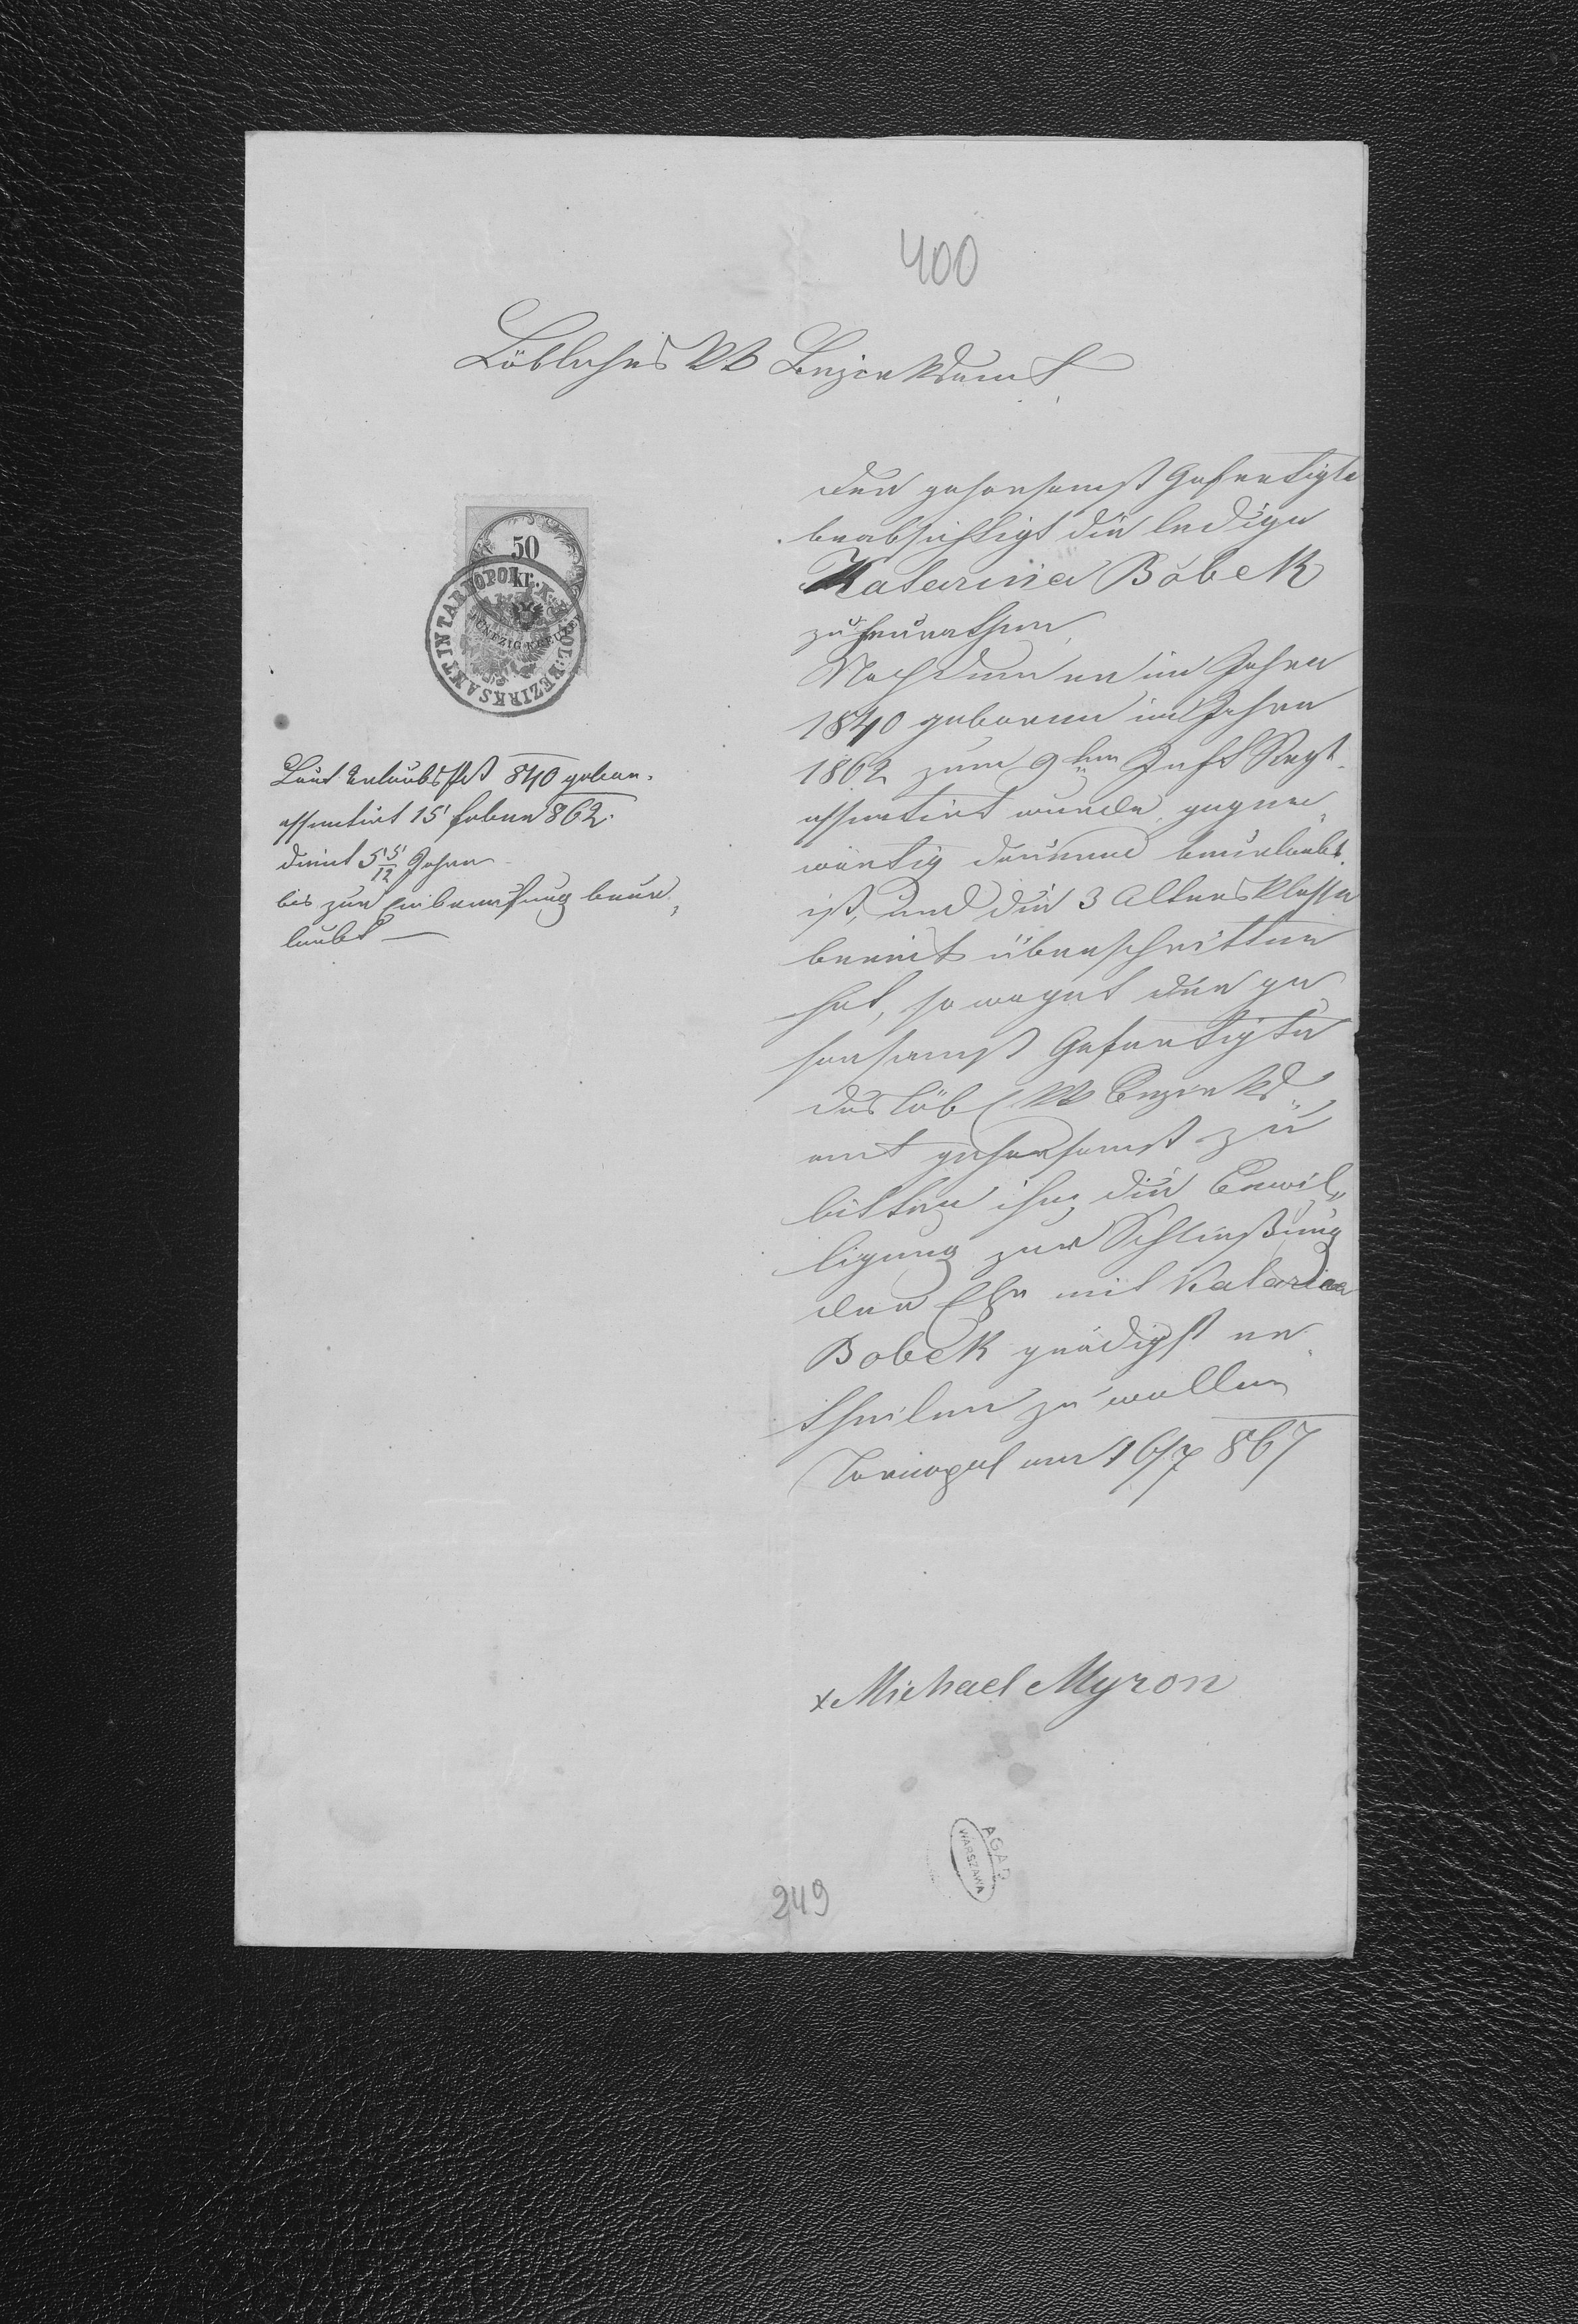 400
Löbliches kk Bezirksamt
50
kr.
FÜNFZIG KREUZER
K. K. POL. BEZIRKSAMT IN TARNOPOL
Laut Urlaubspaß 840 gebor.
assentirt 15 feber 862.
dient 5 5/12 Jahre
bis zur Einberufung beur,
laubt —
Der gehorsamst Gefertigte
beabsichtigt die ledige
Katarina Bobek
zu heurathen
Nachdem er im Jahre
1840 geboren im Jahre
1862 zum 9ten Inft Regt.
assentirt wurde, gegen„
wärtig dauernd beurlaubt
ist, und die 3 Altersklasse
bereits überschritten
hat, so waget der ge
horsamst Gefertigte
das löbl kk Bezirks„
amt gehorsamst zu
bitten ihm die Bewil„
ligung zur Schließung
der Ehe mit Katarina
Bobek gnädigst er„
theilen zu wollen
Tarnopol am 16/7 867
x Michael Myron
AGAD
WARSZAWA
249